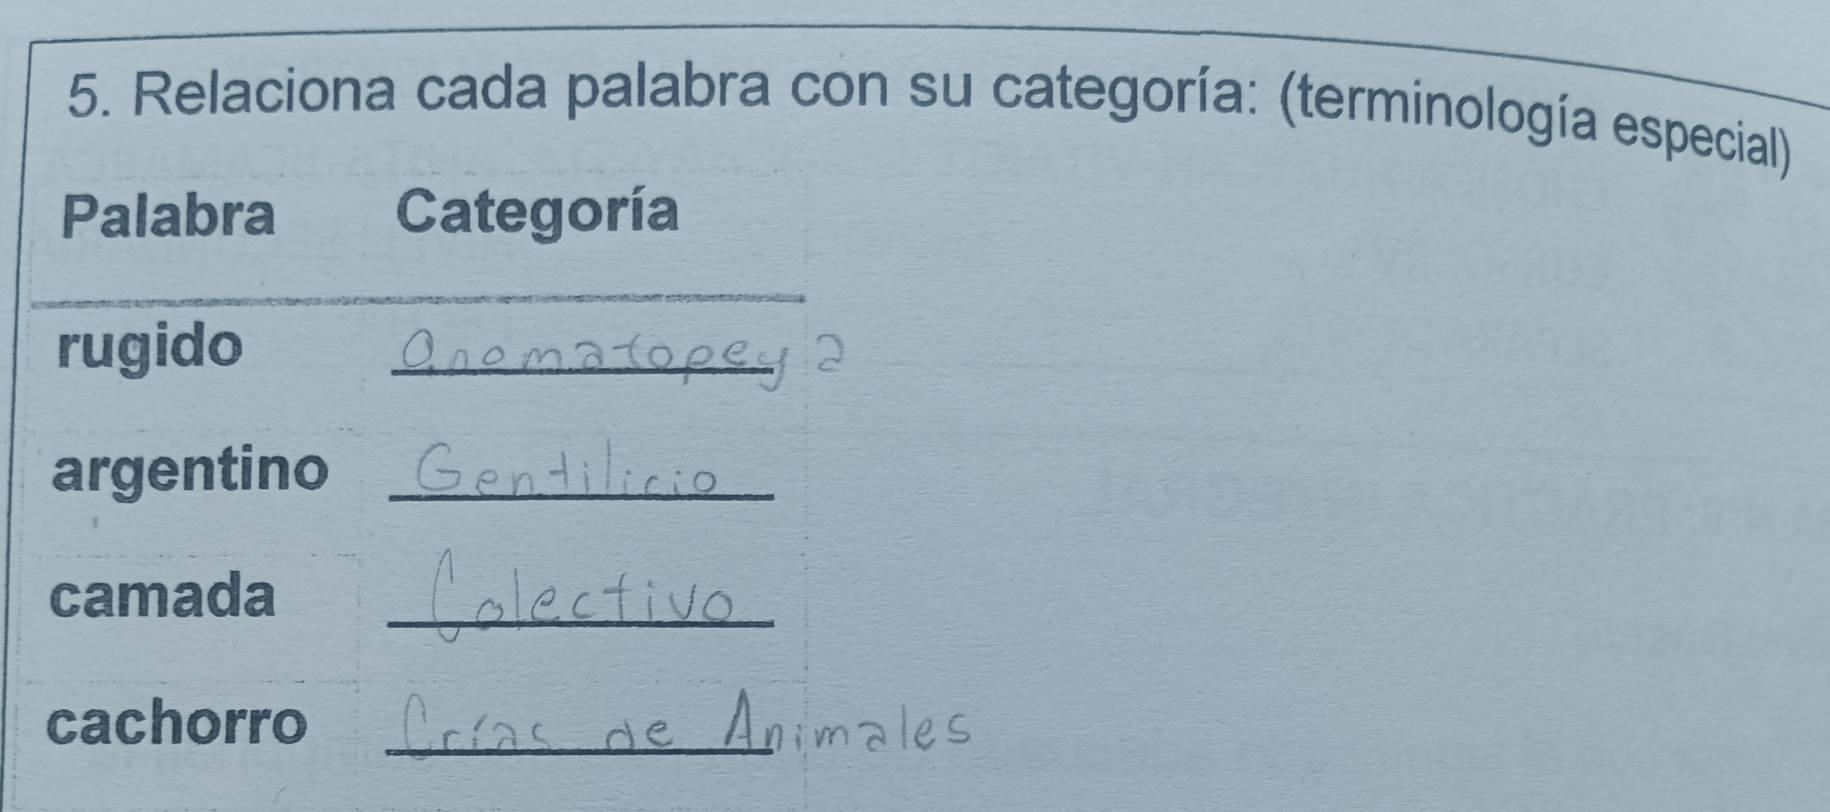 5. Relaciona cada palabra con su categoría: (terminología especial)
Palabra Categoría
rugido Onomatopeya
argentino Gentilicio
camada Colectivo
cachorro Crías de Animales